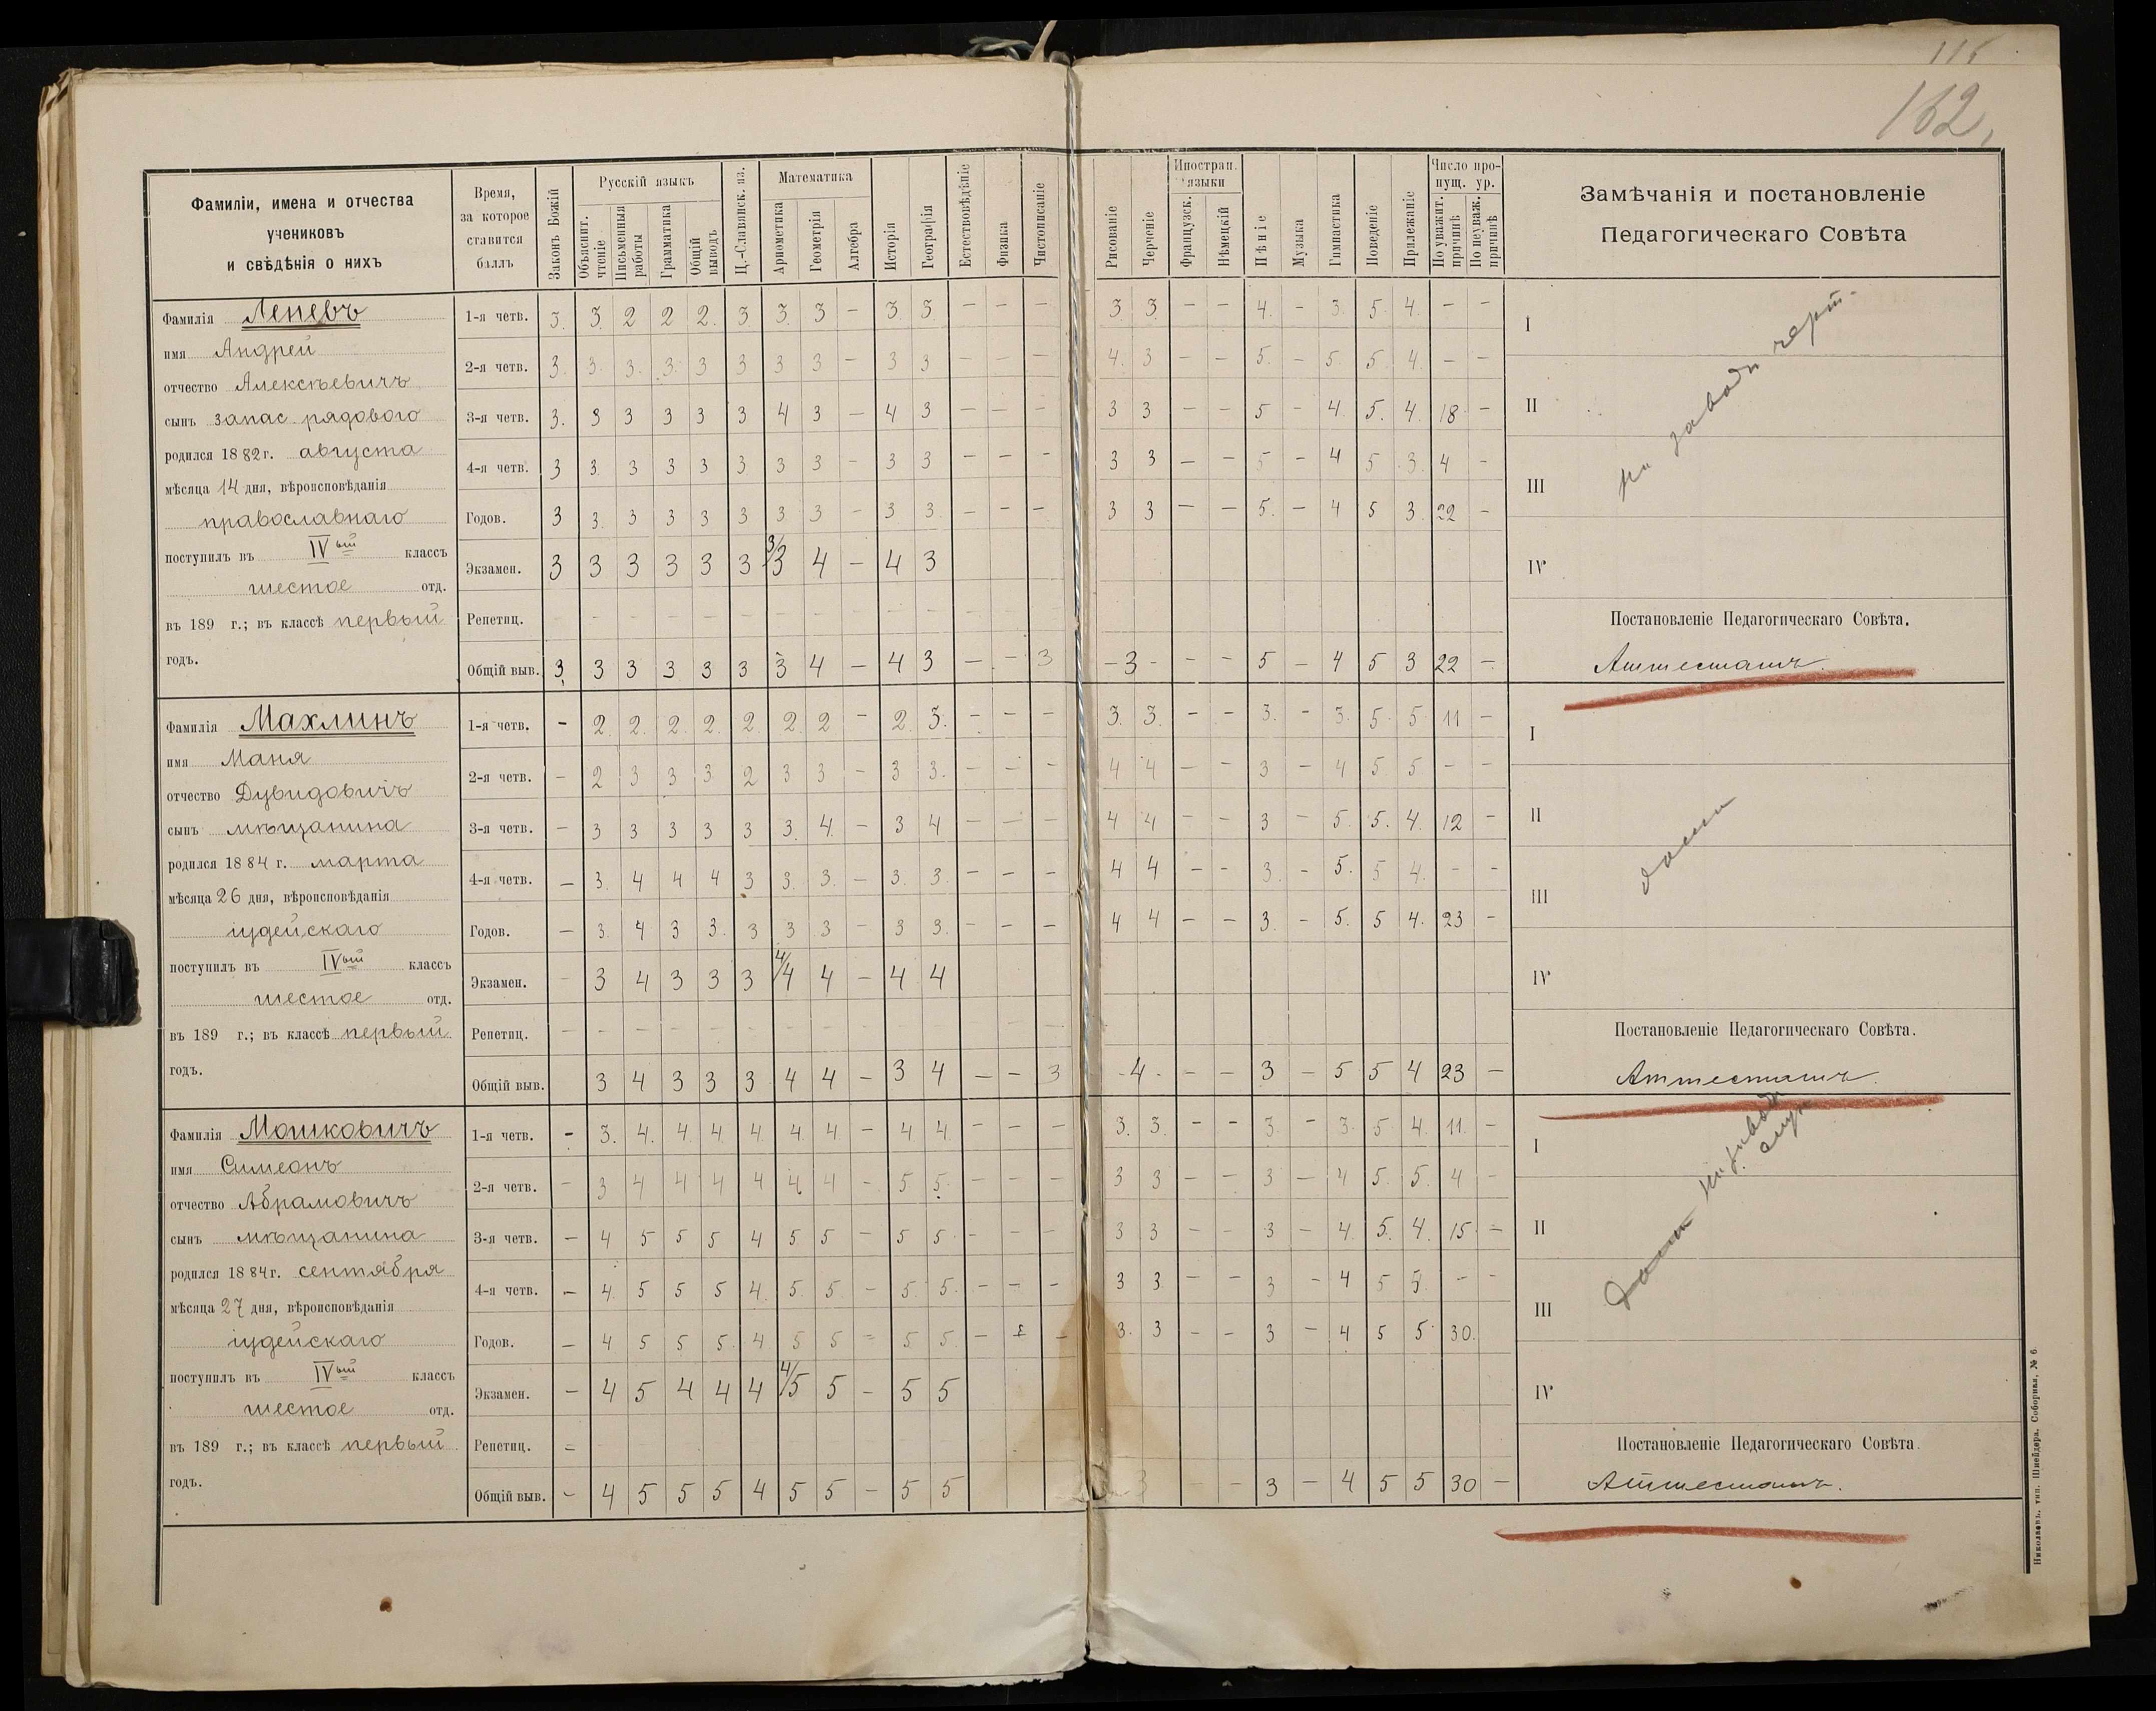 116
162,
Фамиліи, имена и отчества
учениковъ
и свѣдѣнія о нихъ
Время,
за которое
ставится
баллъ
Законъ Божій
Русскій языкъ
Объяснит. чтеніе
Письменныя работы
Грамматика
Общій выводъ
Ц.-Славянск. яз.
Математика
Ариѳметика
Геометрія
Алгебра
Исторія
Географія
Естествовѣдѣніе
Физика
Чистописаніе
Рисованіе
Черченіе
Иностран. языки
Французск.
Нѣмецкій
Пѣніе
Музыка
Гимнастика
Поведеніе
Прилежаніе
Число пропущ. ур.
По уважит. причинѣ
По неуваж. причинѣ
Замѣчанія и постановленіе
Педагогическаго Совѣта
Фамилія Лепевъ
имя Андрей
отчество Алексѣевичъ
сынъ запас. рядового
родился 1882 г. августа
мѣсяца 14 дня, вѣроисповѣданія
православнаго
поступилъ въ IVый классъ
шестое отд.
въ 189 г.; въ классѣ первый
годъ.
1-я четв. 3. 3. 2 2 2. 3. 3. 3 — 3. 3. — — — 3 3. — — 4. — 3. 5. 4. — —
2-я четв. 3. 3. 3. 3. 3 3 3 3 — 3 3 — — — 4. 3 — — 5. — 5. 5. 4 — —
3-я четв. 3. 3 3 3 3 3 4 3 — 4 3 — — — 3 3 — — 5 — 4. 5. 4. 18 —
4-я четв. 3 3. 3 3 3 3 3 3 — 3 3 — — — 3 3 — — 5 — 4 5 3. 4 —
Годов. 3 3. 3 3 3 3 3. 3 — 3 3. — — — 3 3 — — 5. — 4 5 3. 22 —
Экзамен. 3 3 3 3 3 3 3/3 4 — 4 3
Репетиц. — — — — — — — — — — — — —
Общій выв. 3 3 3 3 3 3 3 4 — 4 3 — — 3 — 3 — — — 5 — 4 5 3 22 —
I
II
III
IV
на заводъ черт.
Постановленіе Педагогическаго Совѣта.
Аттестатъ.
Фамилія Махлинъ
имя Маня
отчество Дувидовичъ
сынъ мѣщанина
родился 1884 г. марта
мѣсяца 26 дня, вѣроисповѣданія
іудейскаго
поступилъ въ IVый классъ
шестое отд.
въ 189 г.; въ классѣ первый
годъ.
1-я четв. — 2. 2. 2. 2. 2. 2. 2 — 2. 3. — — — 3. 3. — — 3. — 3. 5. 5 11 —
2-я четв. — 2 3 3 3. 2 3 3 — 3 3. — — — 4 4 — — 3 — 4 5. 5 — —
3-я четв. — 3 3 3 3 3 3. 4. — 3 4 — — — 4 4 — — 3 — 5. 5. 4. 12 —
4-я четв. — 3. 4 4 4 3 3. 3. — 3. 3. — — — 4 4 — — 3. — 5. 5 4. — —
Годов. — 3. 4 3 3. 3 3 3 — 3 3. — — — 4 4 — — 3. — 5. 5 4. 23 —
Экзамен. — 3 4 3 3 3 4/4 4 — 4 4
Репетиц. — — — — — — — — — — — — — —
Общій выв. 3 4 3 3 3 4 4 — 3 4 — — 3 — 4 — — — 3 — 5 5 4 23 —
I
II
III
IV
дома
Постановленіе Педагогическаго Совѣта.
Аттестатъ.
Фамилія Мошковичъ
имя Симеонъ
отчество Абрамовичъ
сынъ мѣщанина
родился 1884 г. сентября
мѣсяца 27 дня, вѣроисповѣданія
іудейскаго
поступилъ въ IVый классъ
шестое отд.
въ 189 г.; въ классѣ первый
годъ.
1-я четв. — 3. 4. 4. 4. 4. 4. 4 — 4 4. — — — 3. 3. — — 3. — 3. 5. 4. 11. —
2-я четв. — 3 4 4 4 4 4 4 — 5 5. — — — 3 3 — — 3 — 4 5. 5. 4 —
3-я четв. — 4 5 5 5 4 5 5 — 5 5. — — — 3 3 — — 3 — 4. 5. 4. 15 —
4-я четв. — 4. 5 5 5 4. 5. 5. — 5. 5. — — — 3 3. — — 3 — 4 5 5. — —
Годов. — 4 5 5 5. 4 5 5 — 5 5. — — — 3. 3 — — 3 — 4 5 5. 30.
Экзамен. — 4 5 4 4 4 4/5 5 — 5 5
Репетиц. =
Общій выв. — 4 5 5 5 4 5 5 — 5 5 3 — — 3 — 4 5 5 30 —
I
II
III
IV
Постановленіе Педагогическаго Совѣта.
Аттестатъ.
Николаевъ, тип. Шнейдера, Соборная, № 6.